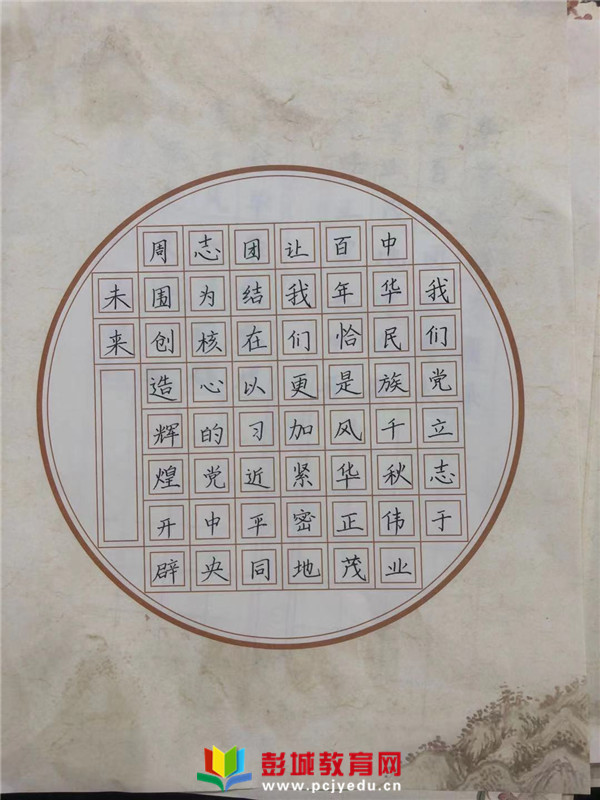 我们党立志于
中华民族千秋伟业
百年恰是风华正茂
让我们更加紧密地
团结在以习近平同
志为核心的党中央
周围创造辉煌开辟
未来
彭城教育网
www.pcjyedu.cn